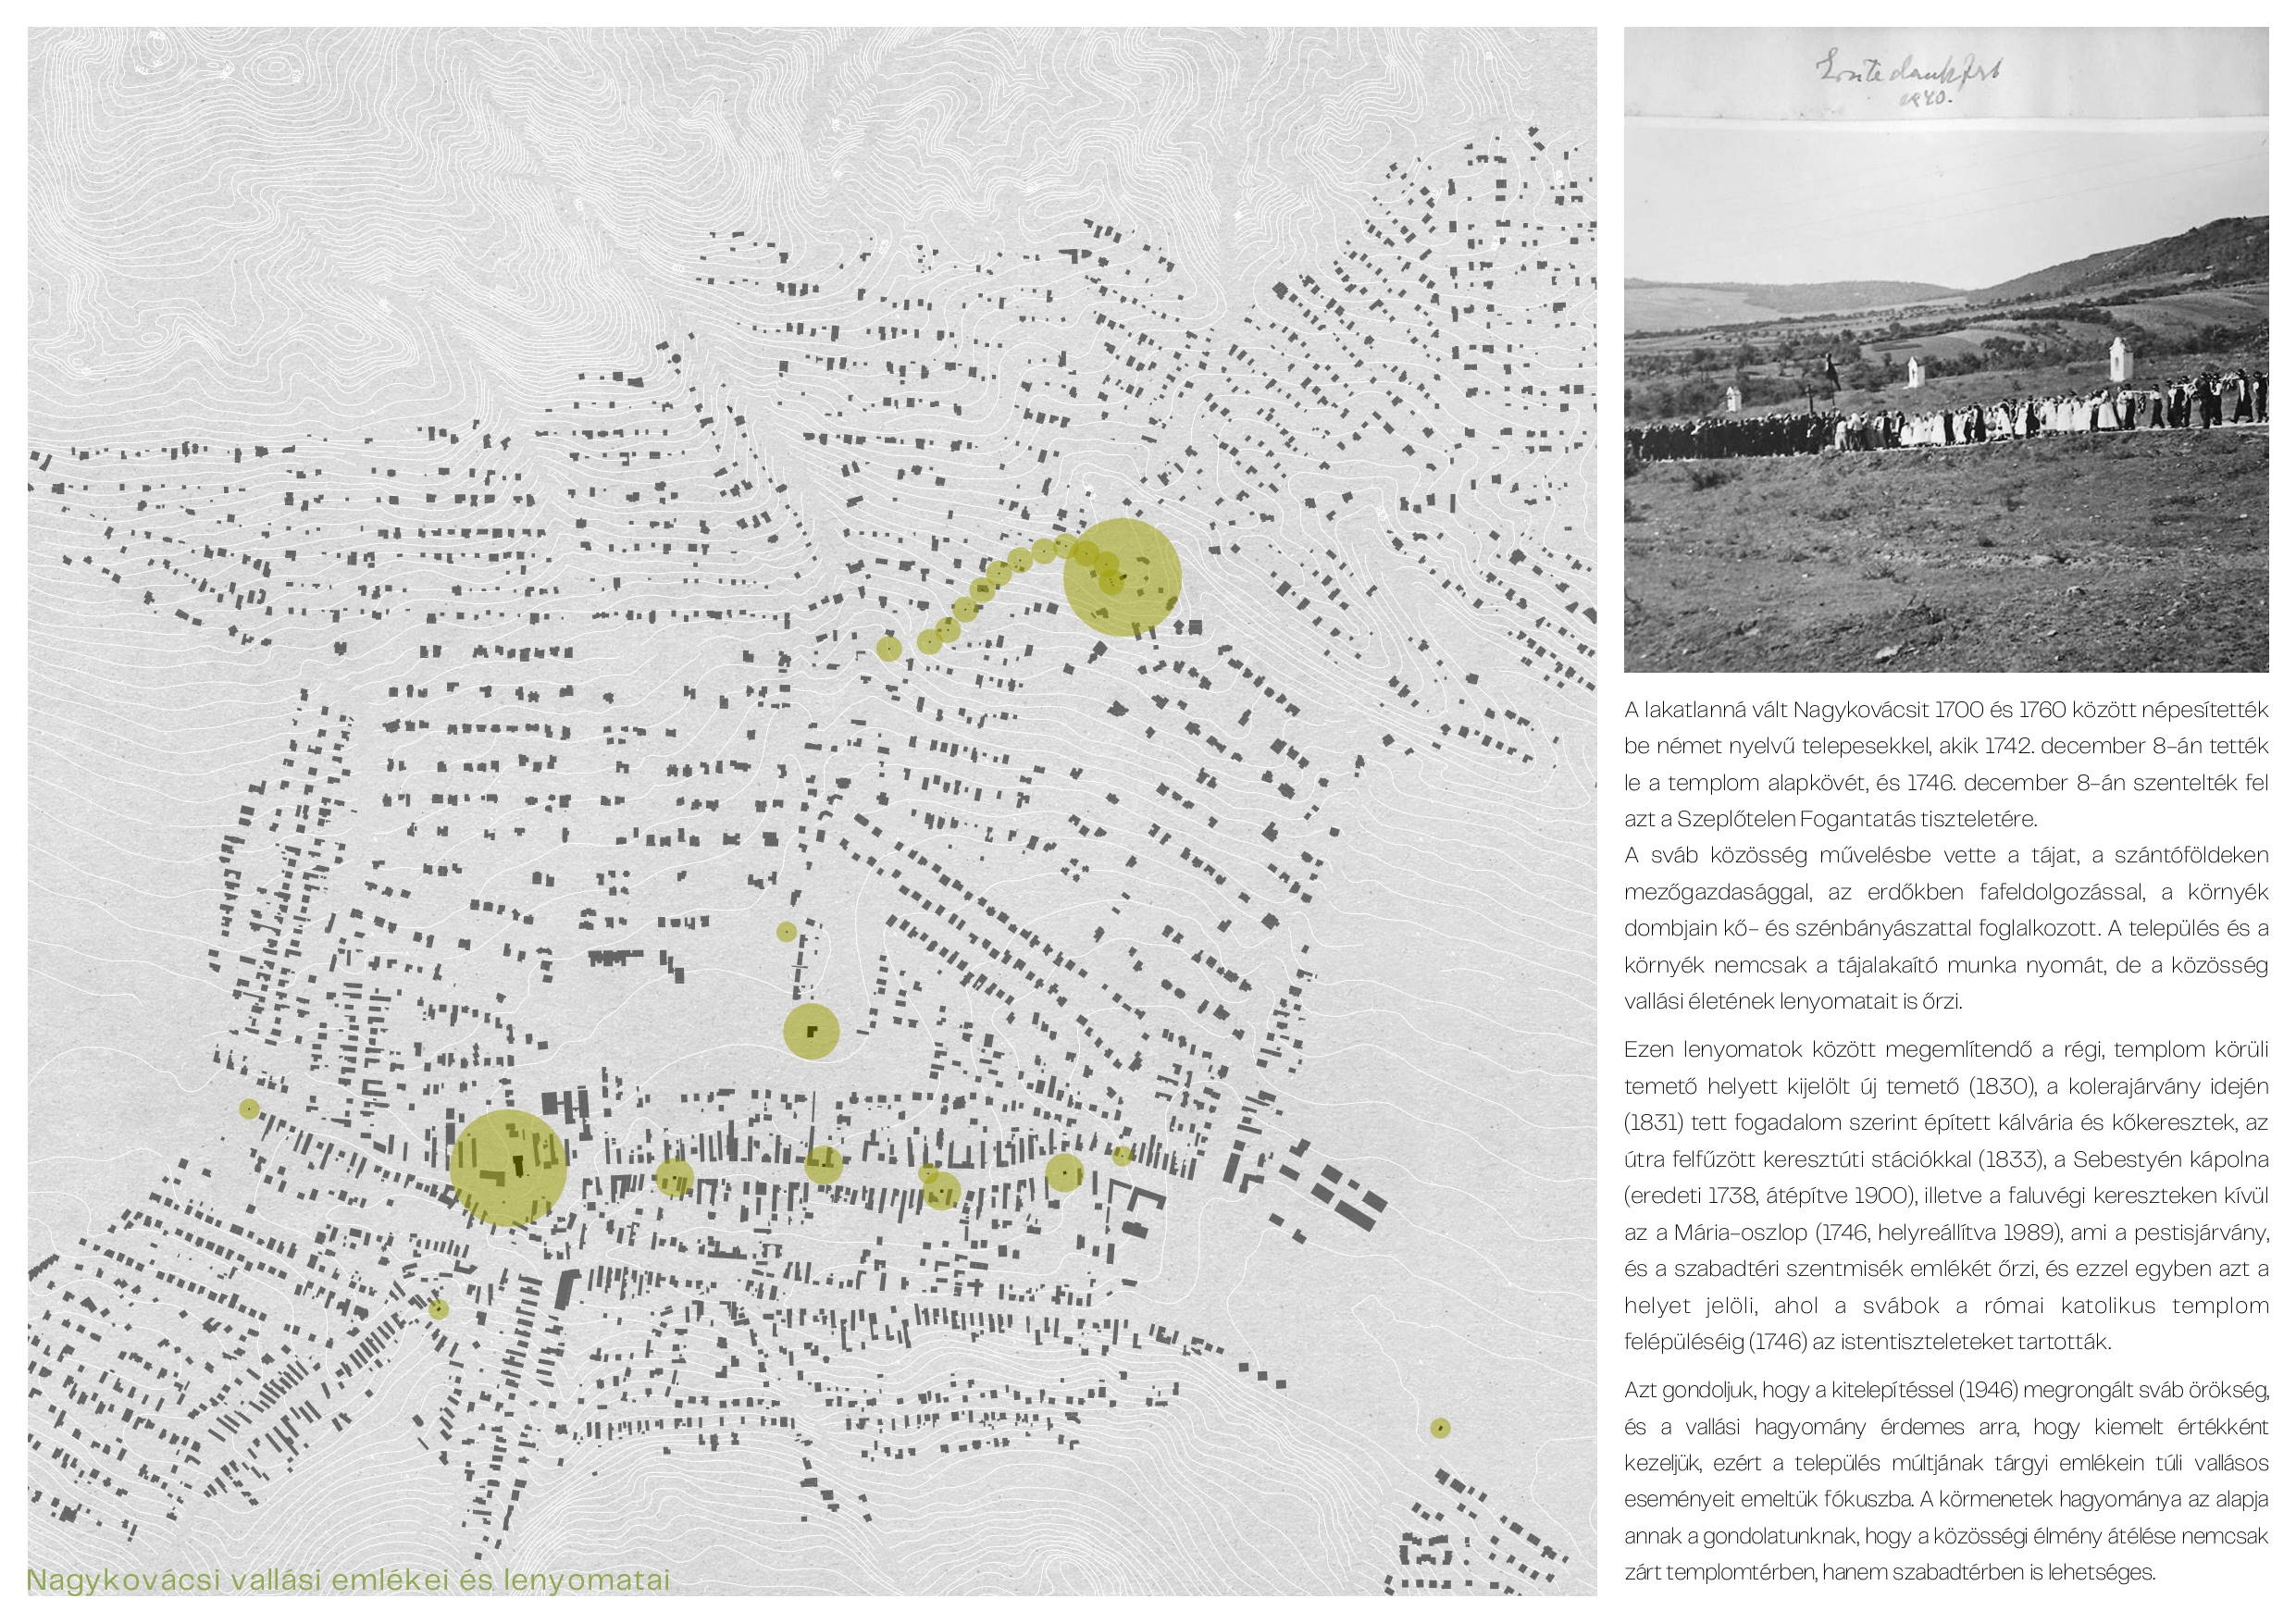 Erntedankfest
1940.
A lakatlanná vált Nagykovácsit 1700 és 1760 között népesítették
be német nyelvű telepesekkel, akik 1742. december 8-án tették
le a templom alapkövét, és 1746. december 8-án szentelték fel
azt a Szeplőtelen Fogantatás tiszteletére.
A sváb közösség művelésbe vette a tájat, a szántóföldeken
mezőgazdasággal, az erdőkben fafeldolgozással, a környék
dombjain kő- és szénbányászattal foglalkozott. A település és a
környék nemcsak a tájalakaító munka nyomát, de a közösség
vallási életének lenyomatait is őrzi.
Ezen lenyomatok között megemlítendő a régi, templom körüli
temető helyett kijelölt új temető (1830), a kolerajárvány idején
(1831) tett fogadalom szerint épített kálvária és kőkeresztek, az
útra felfűzött keresztúti stációkkal (1833), a Sebestyén kápolna
(eredeti 1738, átépítve 1900), illetve a faluvégi kereszteken kívül
az a Mária-oszlop (1746, helyreállítva 1989), ami a pestisjárvány,
és a szabadtéri szentmisék emlékét őrzi, és ezzel egyben azt a
helyet jelöli, ahol a svábok a római katolikus templom
felépüléséig (1746) az istentiszteleteket tartották.
Azt gondoljuk, hogy a kitelepítéssel (1946) megrongált sváb örökség,
és a vallási hagyomány érdemes arra, hogy kiemelt értékként
kezeljük, ezért a település múltjának tárgyi emlékein túli vallásos
eseményeit emeltük fókuszba. A körmenetek hagyománya az alapja
annak a gondolatunknak, hogy a közösségi élmény átélése nemcsak
zárt templomtérben, hanem szabadtérben is lehetséges.
Nagykovácsi vallási emlékei és lenyomatai